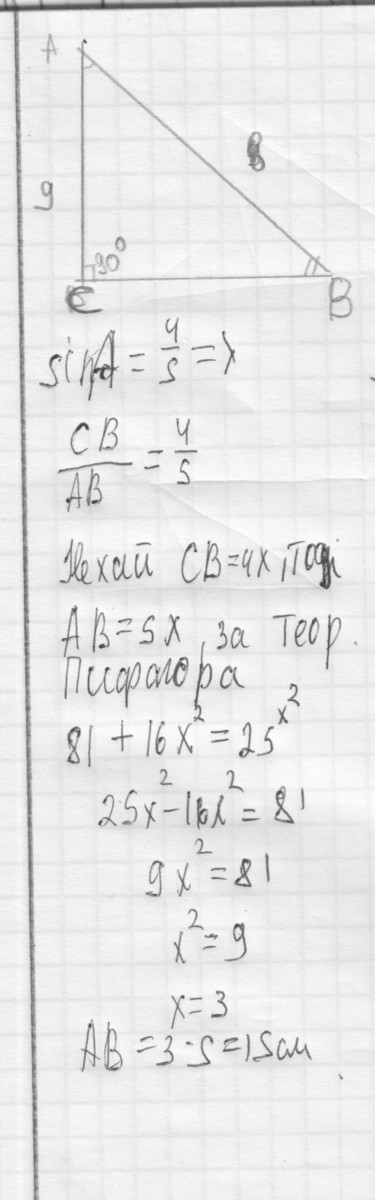 A
9
90°
C
B
sinA = 4/5 =>
CB/AB = 4/5
Нехай CB=4x, тоді
AB=5x, за теор.
Піфагора
81 + 16x² = 25x²
25x² - 16x² = 81
9x² = 81
x² = 9
x = 3
AB = 3·5 = 15 см